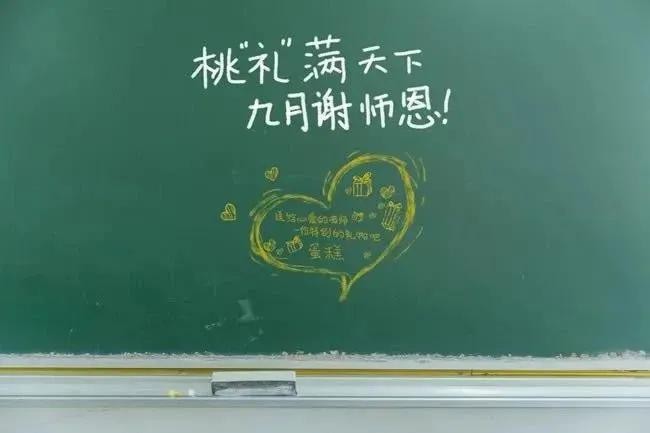 桃"礼"满天下
九月谢师恩!
送给心爱的老师
一份特别的礼物吧
蛋糕